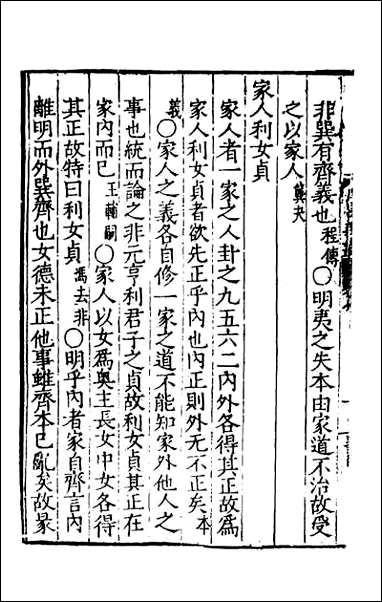 非巽有齊義也程傳○明夷之失本由家道不治故受
之以家人龔夬
家人利女貞
家人者一家之人卦之九五六二内外各得其正故爲
家人利女貞者欲先正乎内也内正則外无不正矣本
義○家人之義各自修一家之道不能知家外他人之
事也統而論之非元亨利君子之貞故利女貞其正在
家内而已王輔嗣○家人以女爲奥主長女中女各得
其正故特曰利女貞馮去非○明乎内者家自齊言内
離明而外巽齊也女德未正他事雖齊本已亂矣故彖